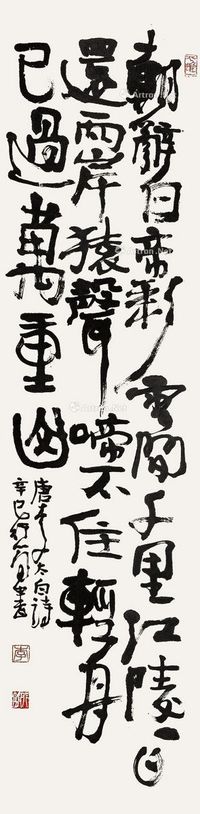 朝辭白帝彩雲間千里江陵一日
還兩岸猿聲啼不住輕舟
已過萬重山
唐李太白詩
辛巳